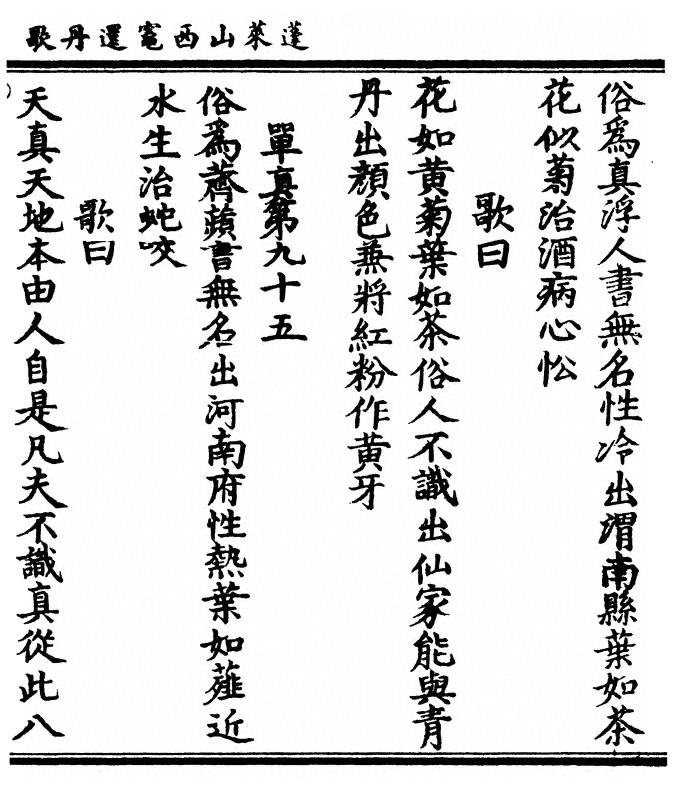 蓬萊山西竈還丹歌
俗爲真浮人書無名性冷出渭南縣葉如茶
花似菊治酒病心忪
歌曰
花如黃菊葉如茶俗人不識出仙家能與青
丹出顏色兼將紅粉作黃牙
單真第九十五
俗爲薺蘋書無名出河南府性熱葉如薤近
水生治蛇咬
歌曰
天真天地本由人自是凡夫不識真從此八